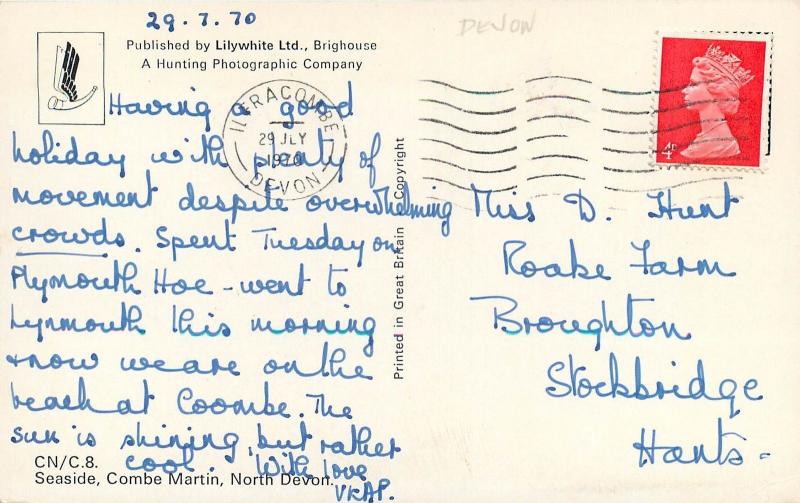 29.7.70
DEVON
Published by Lilywhite Ltd., Brighouse
A Hunting Photographic Company
Having a good
holiday with plenty of
movement despite overwhelming
crowds. Spent Tuesday on
Plymouth Hoe - went to
Lynmouth this morning
& now we are on the
beach at Coombe. The
sun is shining, but rather
cool. With love
VRAP.
CN/C.8.
Seaside, Combe Martin, North Devon.
Printed in Great Britain Copyright
ILFRACOMBE
29 JLY
1970
DEVON
4P
Miss D. Hunt
Roake Farm
Broughton
Stockbridge
Hants.